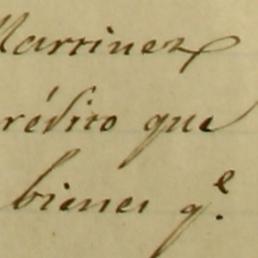 Martinez
rédito que
bienes q.e